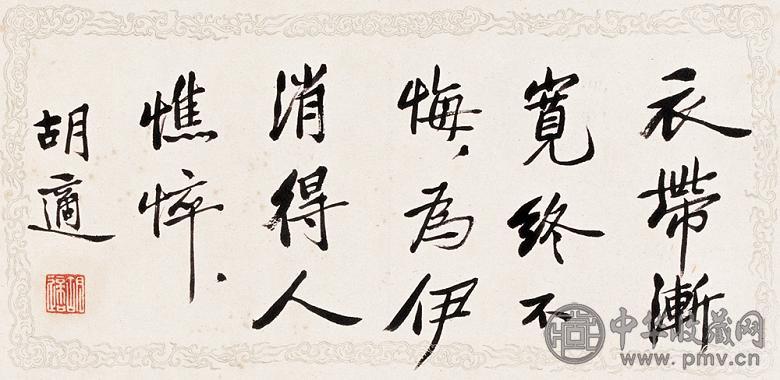 衣帶漸
寬終不
悔，為伊
消得人
憔悴．
胡適
胡適
中华收藏网
www.pmv.cn